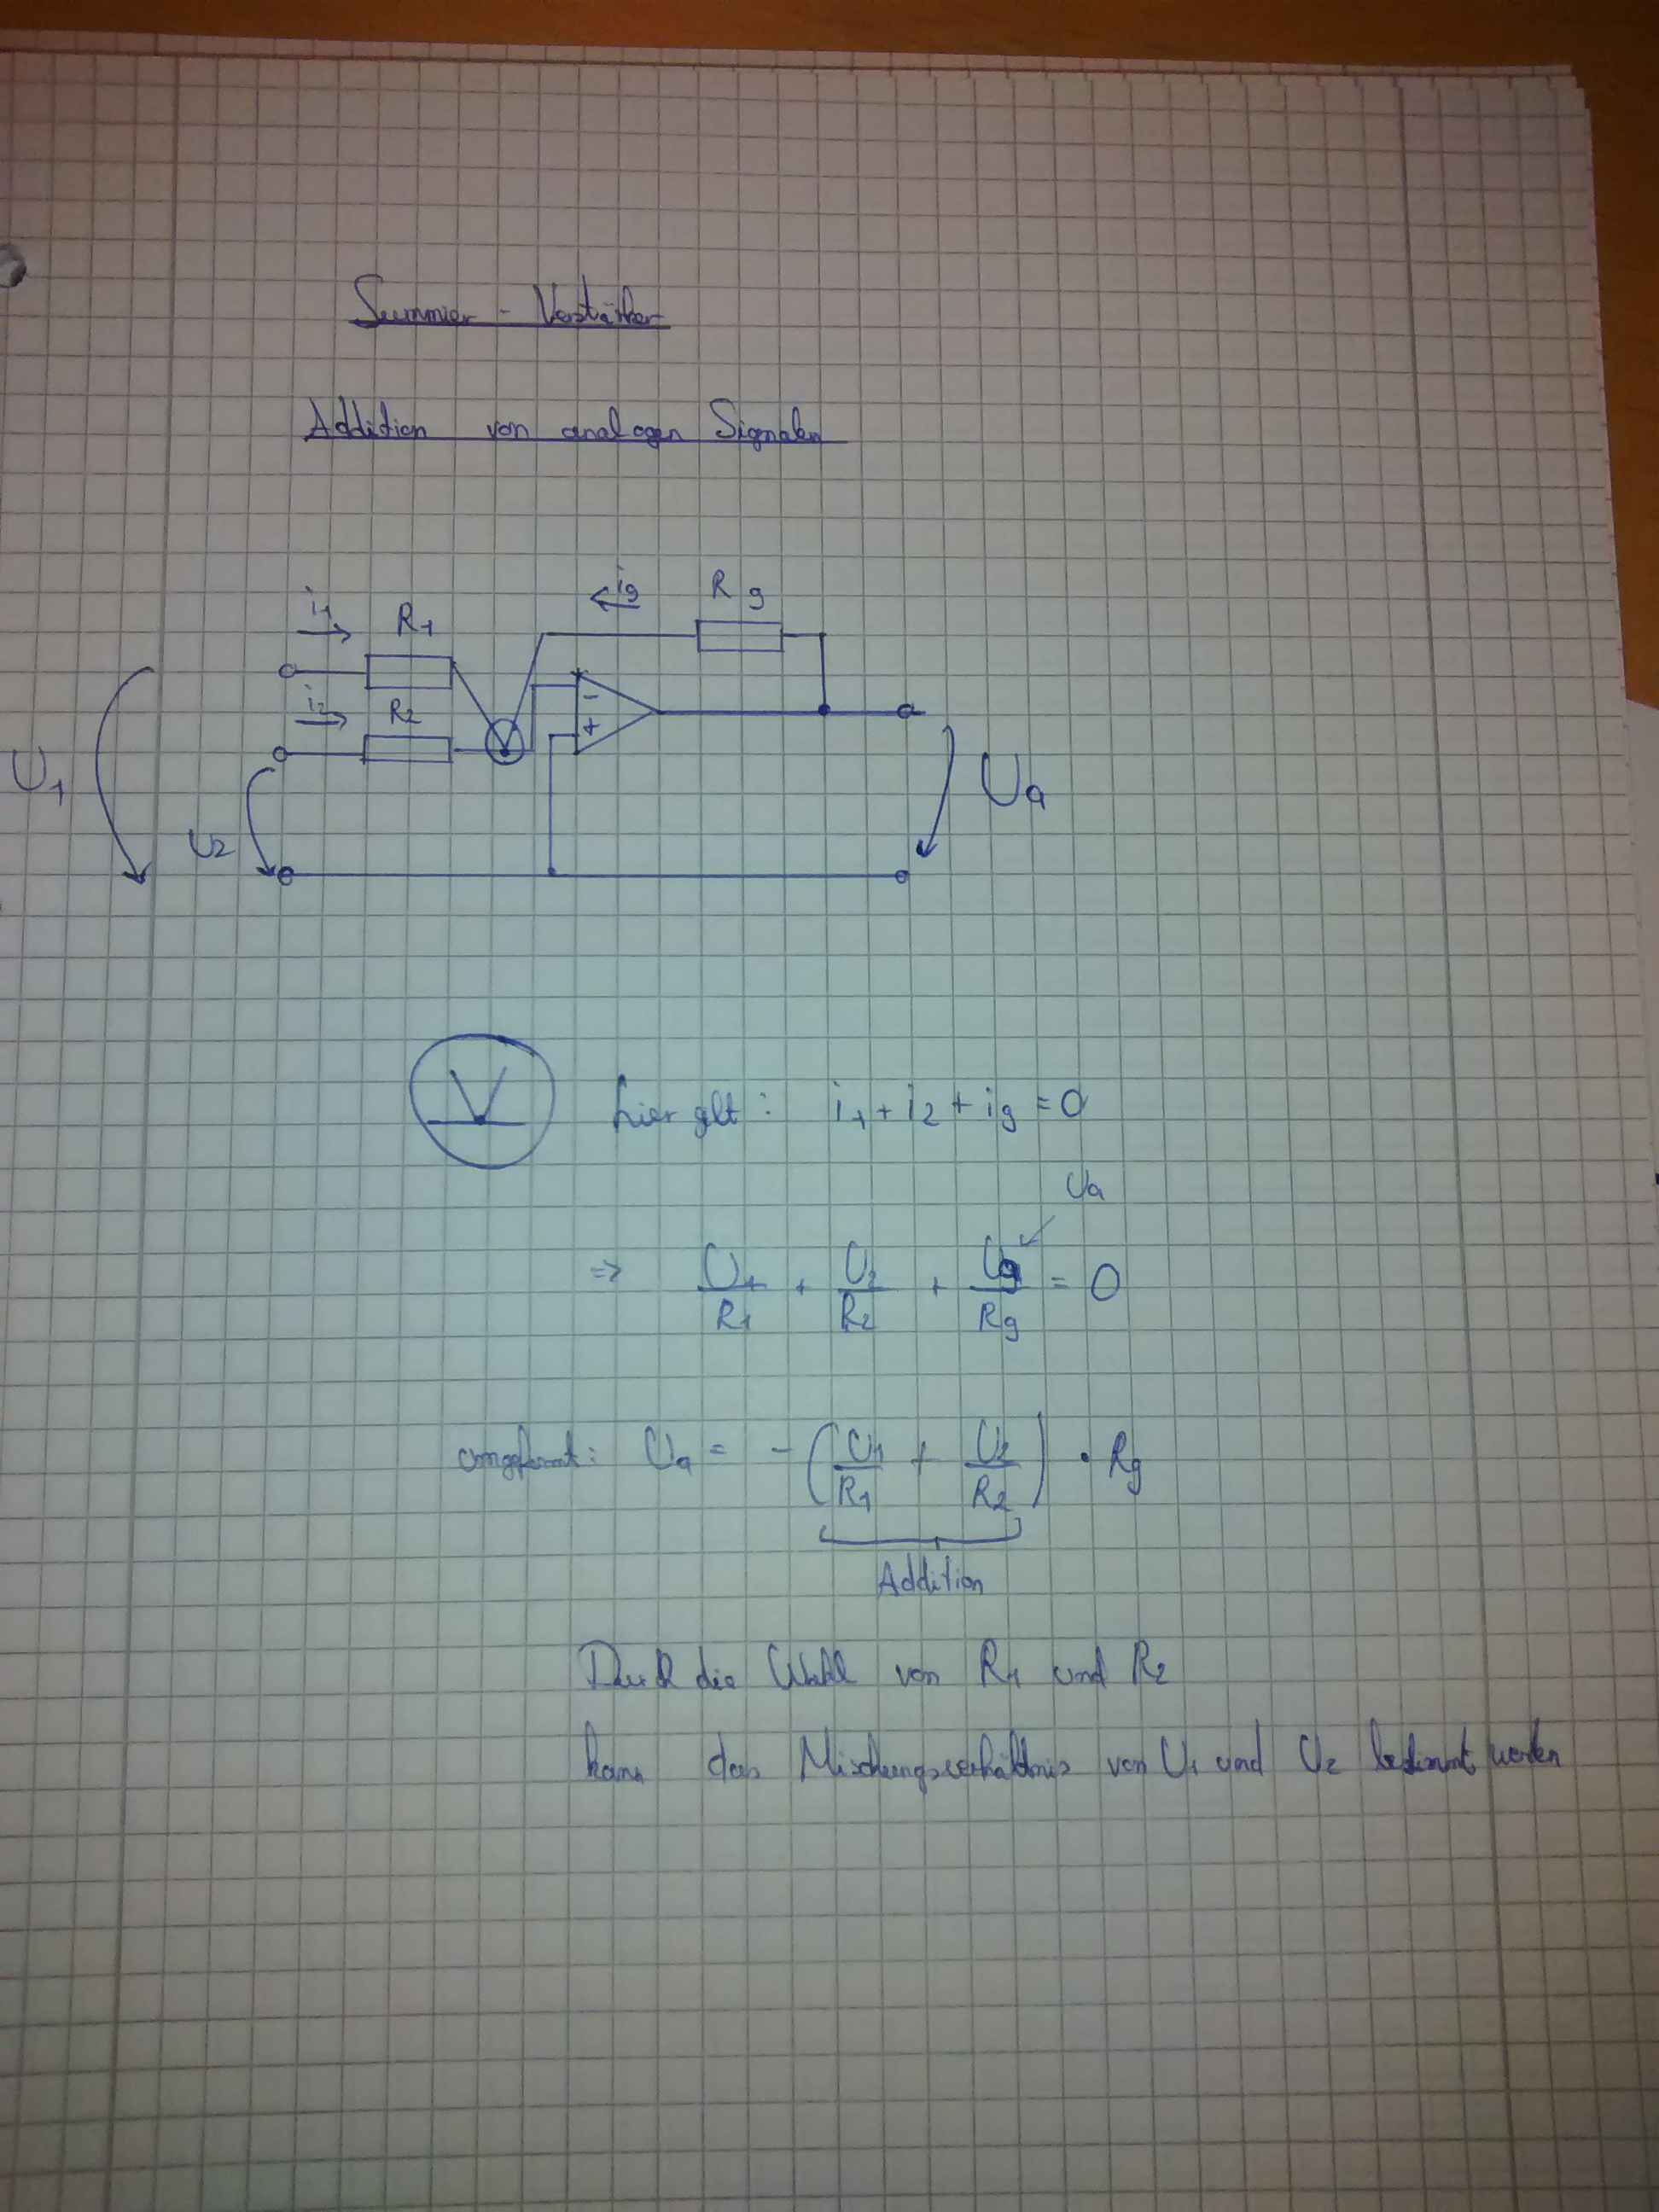 Summier - Verstärker
Addition von analogen Signalen
i1 R1 ig Rg
i2 R2
U1 U2 - + Ua
hier gilt: i1 + i2 + ig = 0
Ua
=> U1/R1 + U2/R2 + Ug/Rg = 0
umgeformt: Ua = - (U1/R1 + U2/R2) · Rg
Addition
Durch die Wahl von R1 und R2
kann das Mischungsverhältnis von U1 und U2 bestimmt werden